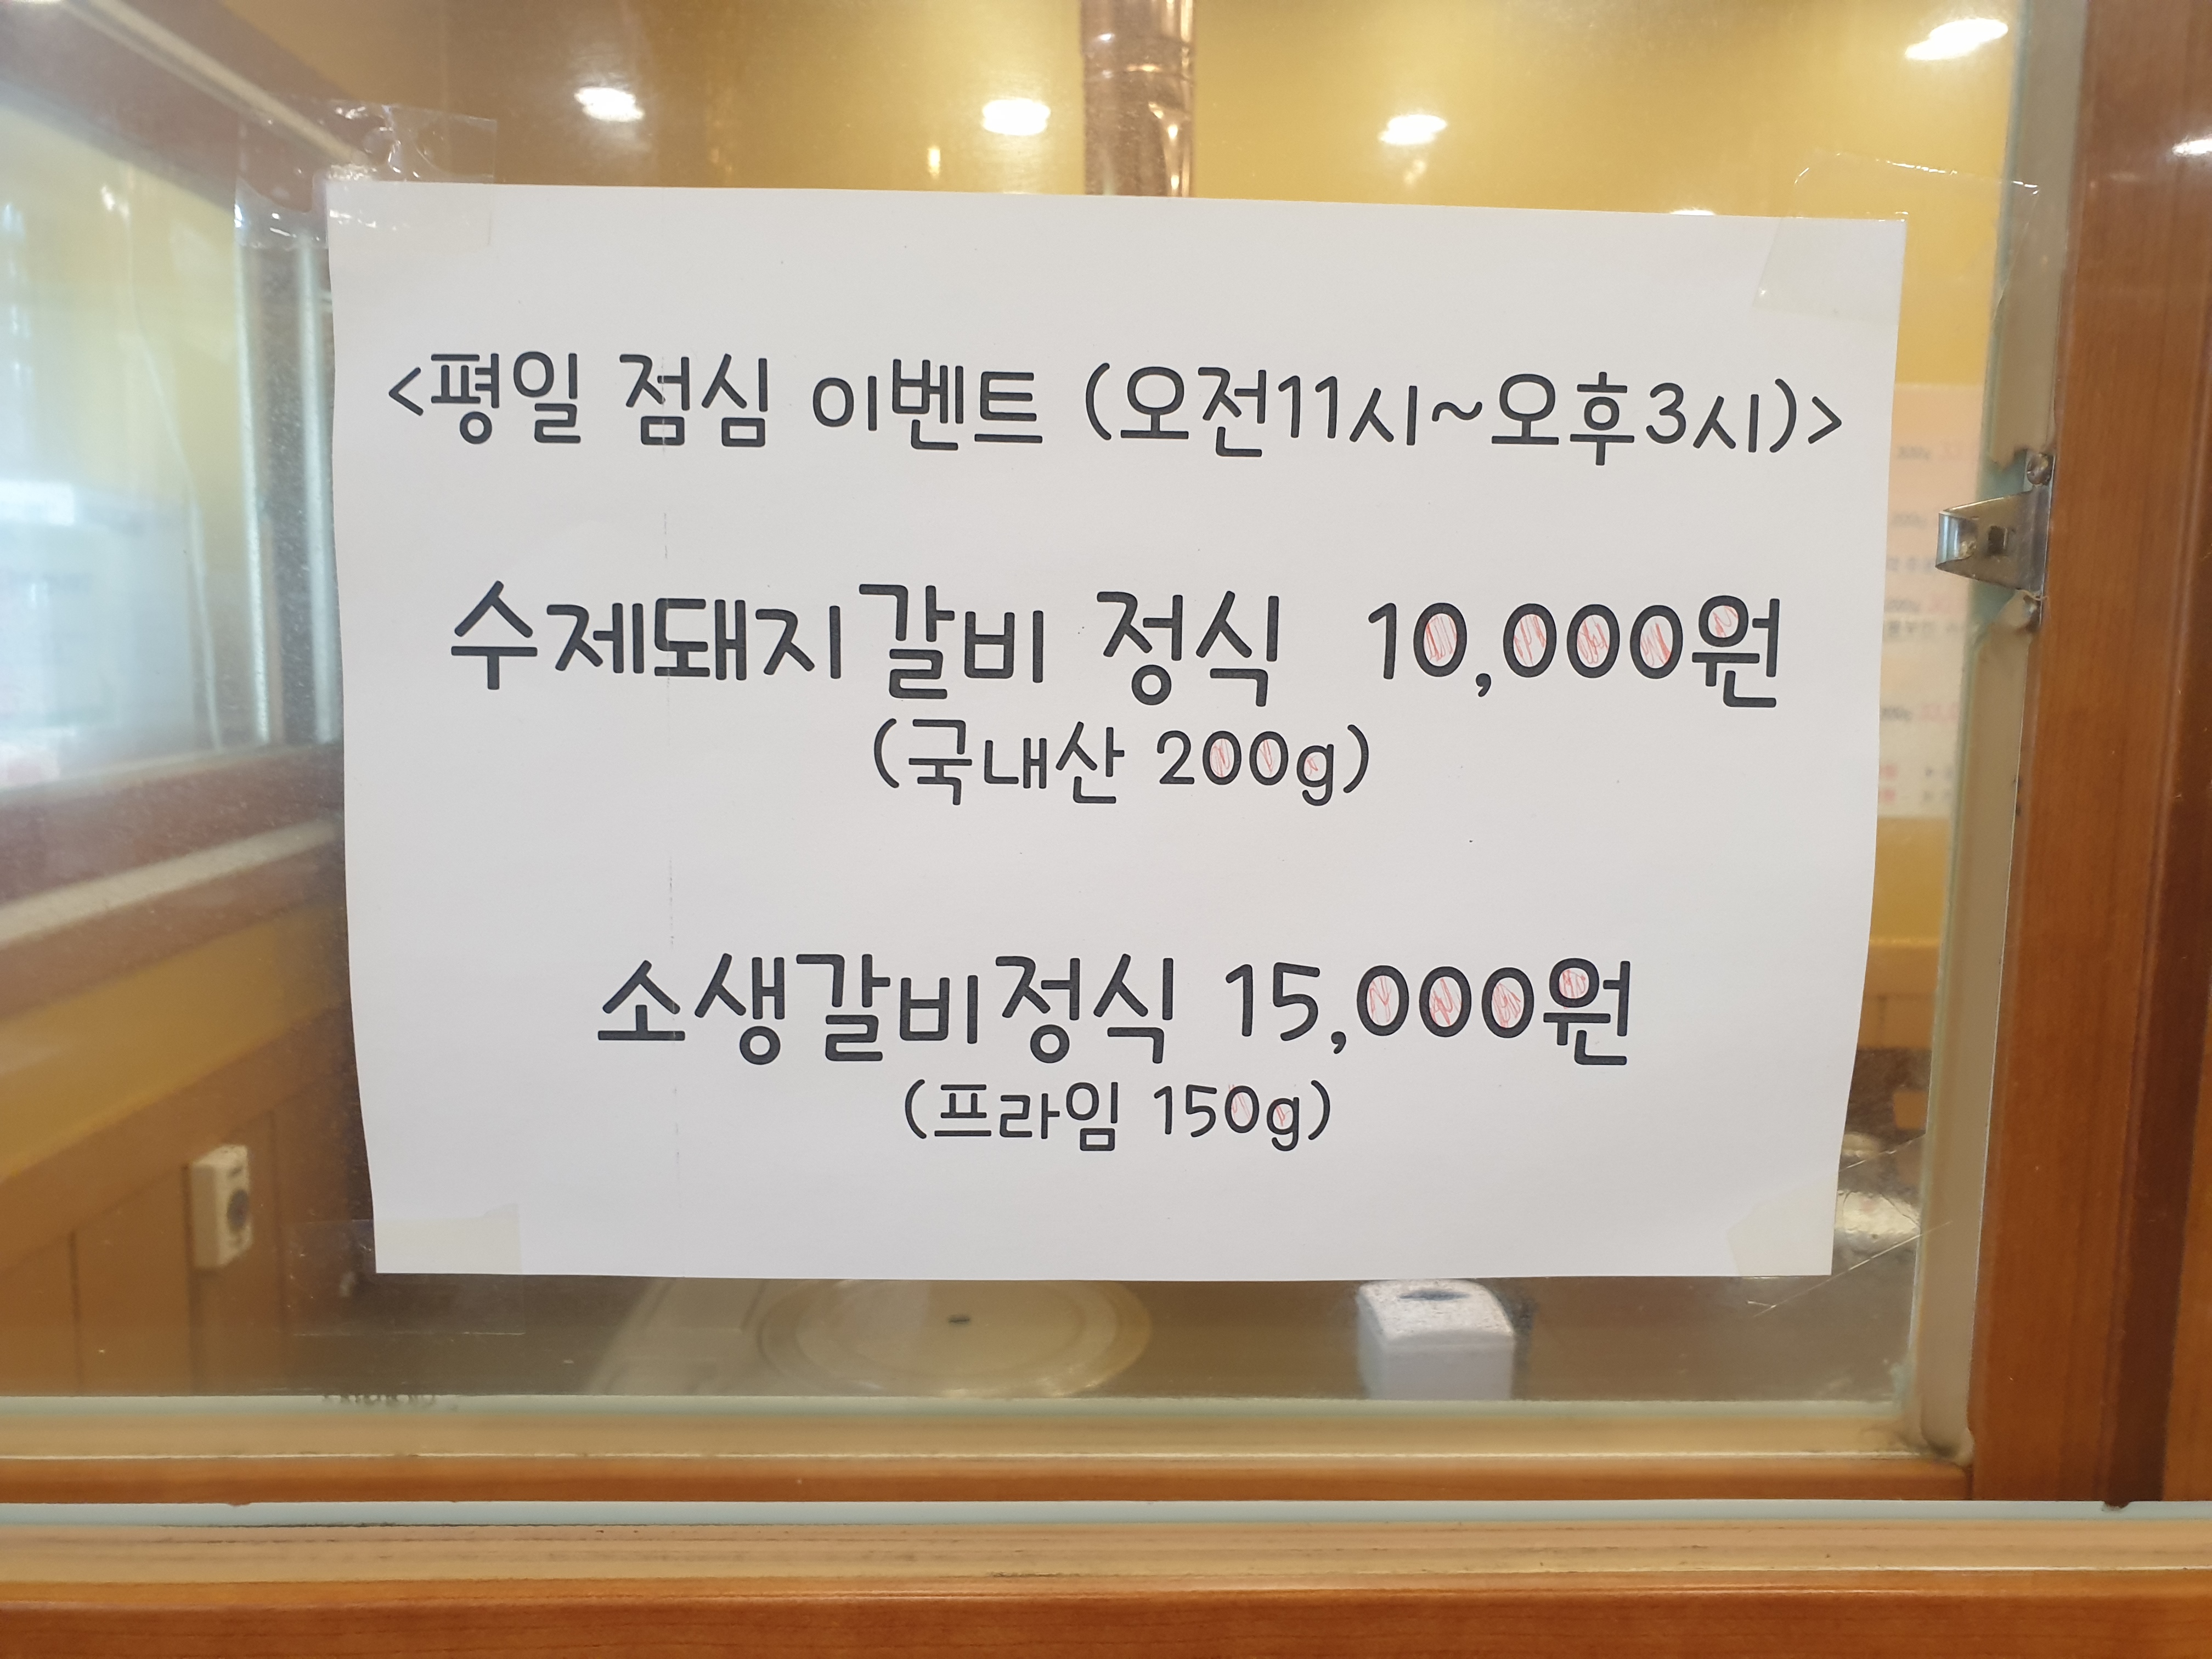 <평일 점심 이벤트 (오전11시~오후3시)>
수제돼지갈비 정식 10,000원
(국내산 200g)
소생갈비정식 15,000원
(프라임 150g)